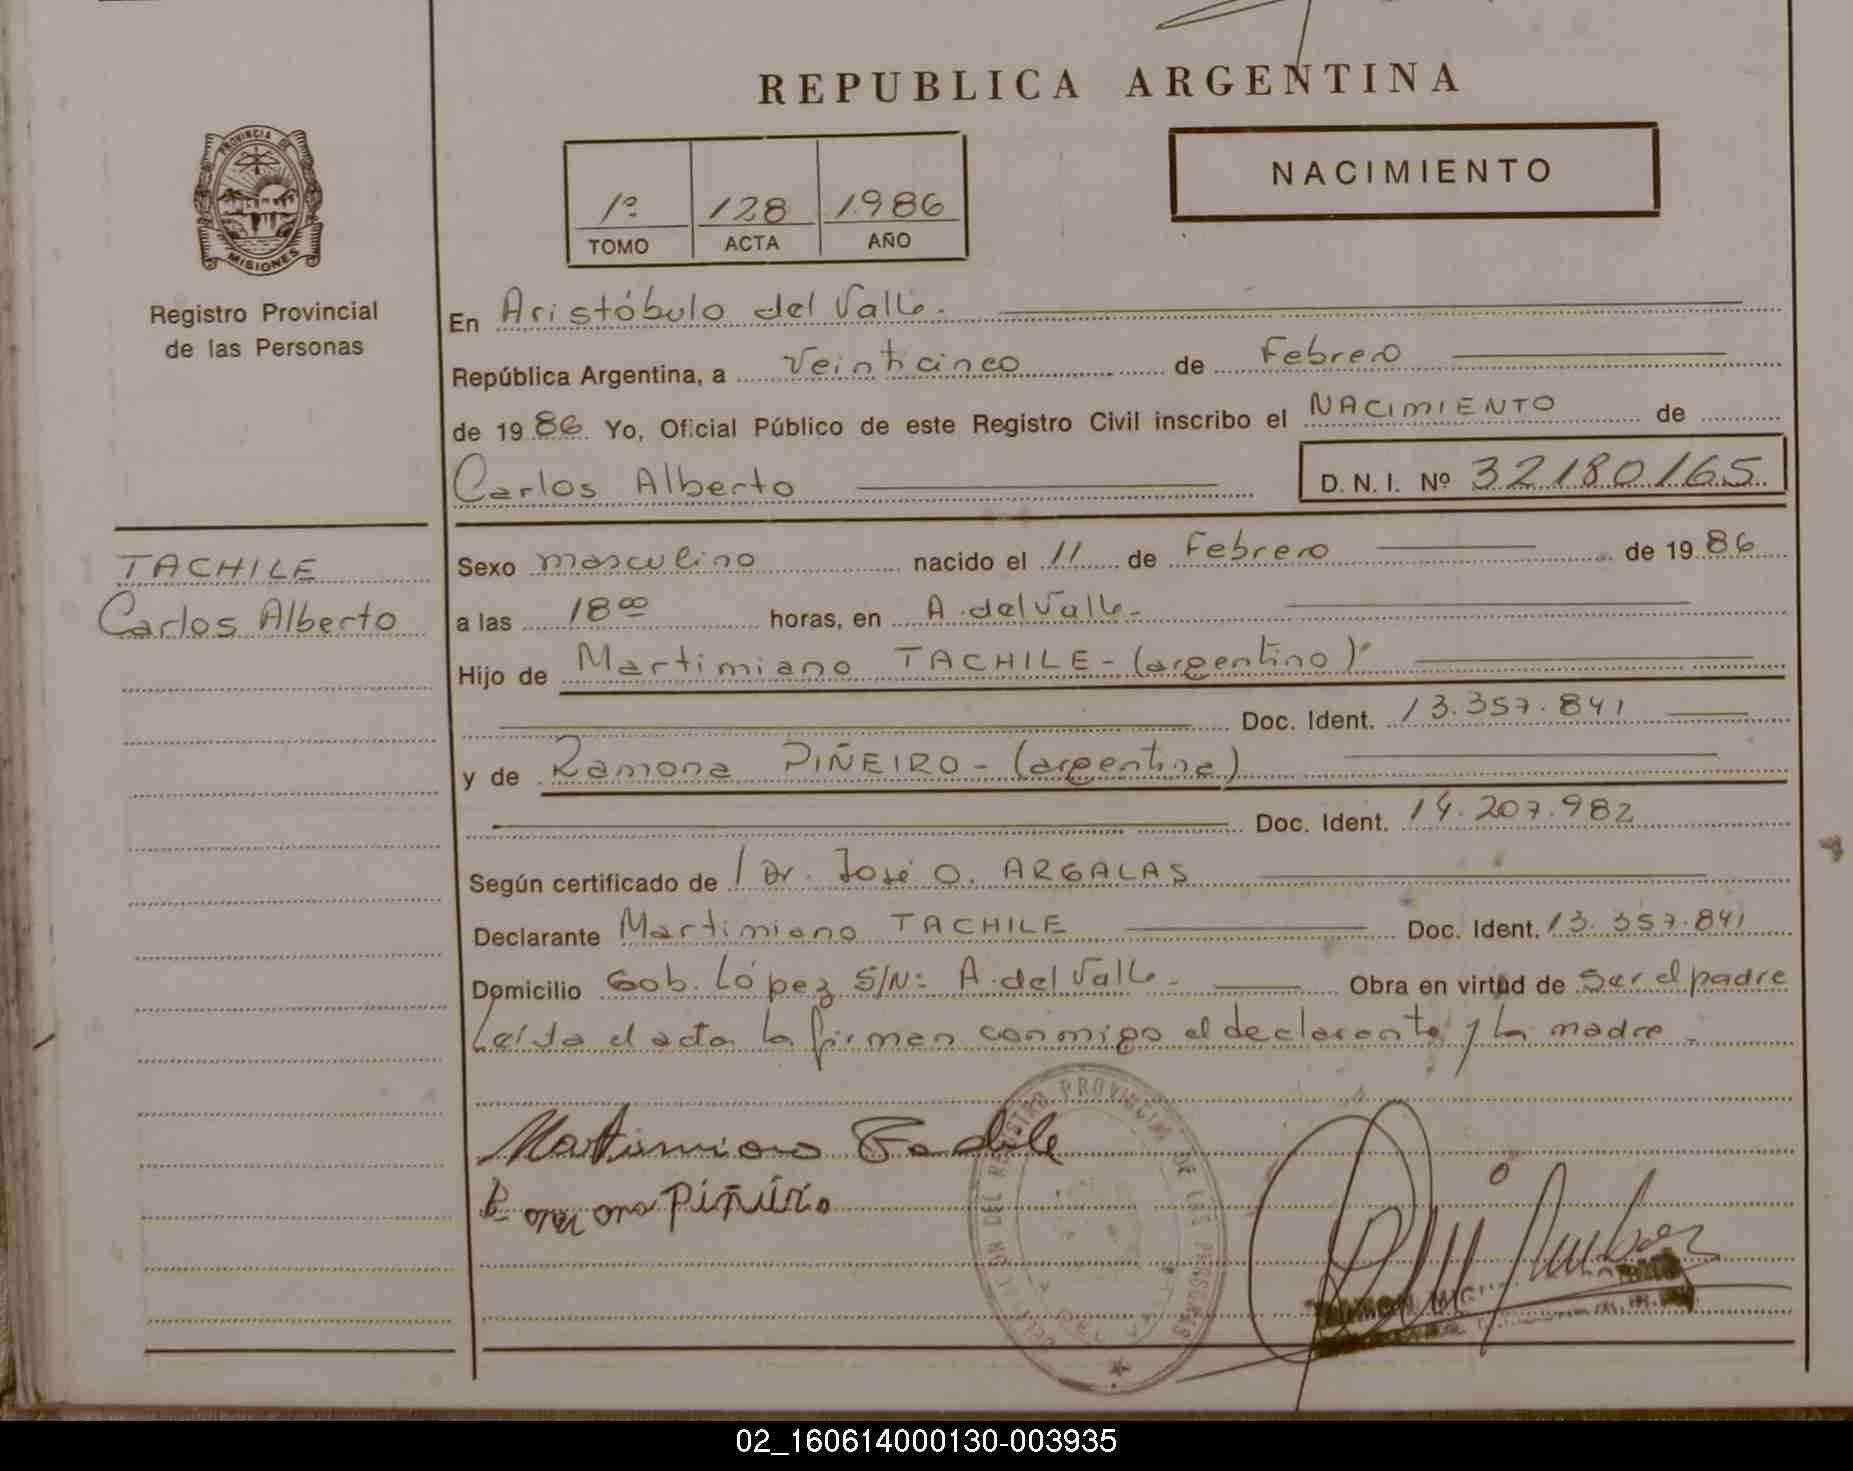 REPUBLICA ARGENTINA
PROVINCIA DE
MISIONES
Registro Provincial
de las Personas
1º 128 1986
TOMO ACTA AÑO
NACIMIENTO
En Aristóbulo del Valle.
República Argentina, a Veinticinco de Febrero
de 1986. Yo, Oficial Público de este Registro Civil inscribo el NACIMIENTO de
Carlos Alberto D. N. I. Nº 32180165
TACHILE
Carlos Alberto
Sexo masculino nacido el 11 de Febrero de 1986
a las 18 00 horas, en A. del Valle.
Hijo de Martimiano TACHILE - (argentino)
Doc. Ident. 13.357.841
y de Ramona PIÑEIRO - (argentina)
Doc. Ident. 14.207.982
Según certificado de / Dr. José O. ARGALAS
Declarante Martimiano TACHILE Doc. Ident. 13.357.841
Domicilio Gob. López S/N: A. del Valle. Obra en virtud de ser el padre
Leída el acta la firman conmigo el declarante y la madre.
Martimiano Tachile
Ramona Piñeiro
DEL REGISTRO PROVINCIAL DE LAS PERSONAS
02_160614000130-003935